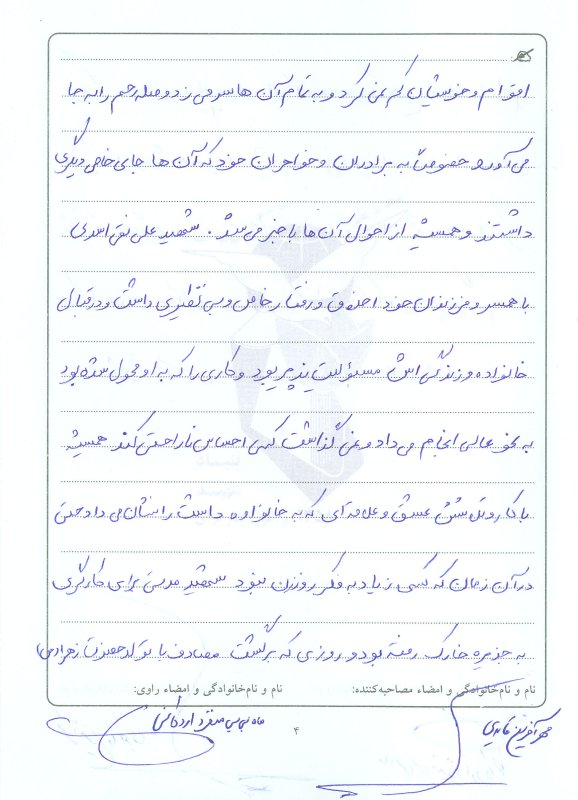 اقوام و خویشان کم نمی کرد و به تمام آن ها سر می زد و صله رحم را به جا
می آورد خصوصاً به برادران و خواهران خود که آن ها جای خاص دیگری
داشتند و همیشه از احوال آن ها با خبر می شد. شهید علی نقی اسدی
با همسر و فرزندان خود اخلاق و رفتار خاص و بی نظیری داشت و در قبال
خانواده و زندگی اش مسئولیت پذیر بود و کاری را که به او محول شده بود
به نحو عالی انجام می داد و نمی گذاشت کسی احساس ناراحتی کند همیشه
با کار و تلاشش عشق و علاقه ای که به خانواده داشت را نشان می داد حتی
در آن زمان که کسی زیاد به فکر روز زن نبود شهید مدتی برای کارگری
به جزیره خارک رفته بود و روزی که برگشت مصادف با تولد حضرت زهرا (س)
نام و نام‌خانوادگی و امضاء مصاحبه‌کننده: نام و نام‌خانوادگی و امضاء راوی:
مهرآفرین ماه بی بی
۴